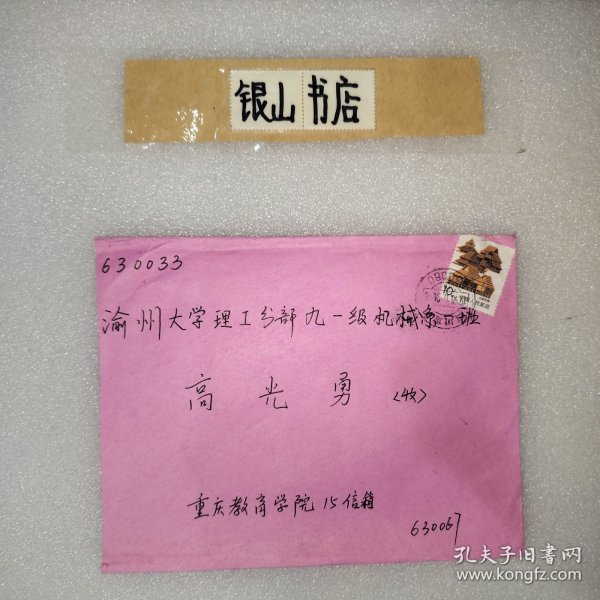 银山书店
630033
渝州大学理工分部九一级机械系一班
高光勇〈收〉
重庆教育学院15信箱
630067
孔夫子旧书网
www.kongfz.com